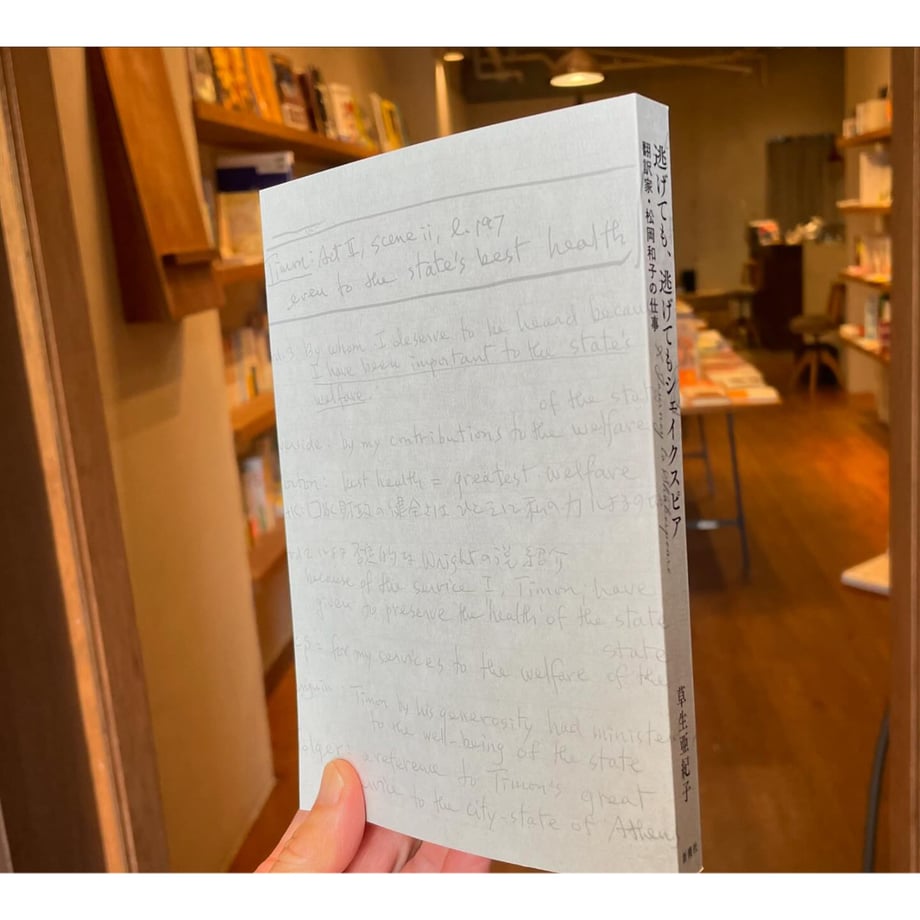 Timon: Act II, scene ii, l. 197
even to the state's best health
By whom I deserve to be heard becau
I have been important to the state's
welfare.
of the state
by my contributions to the welfare
best health = greatest welfare
Wrightの説 紹介
because of the service I, Timon, have
given to preserve the health of the state
state
= for my services to the welfare of the
Timon by his generosity had ministe
to the well-being of the state
a reference to Timon's great
to the city-state of Athen
逃げても、逃げてもシェイクスピア
翻訳家・松岡和子の仕事
草生亜紀子
新潮社